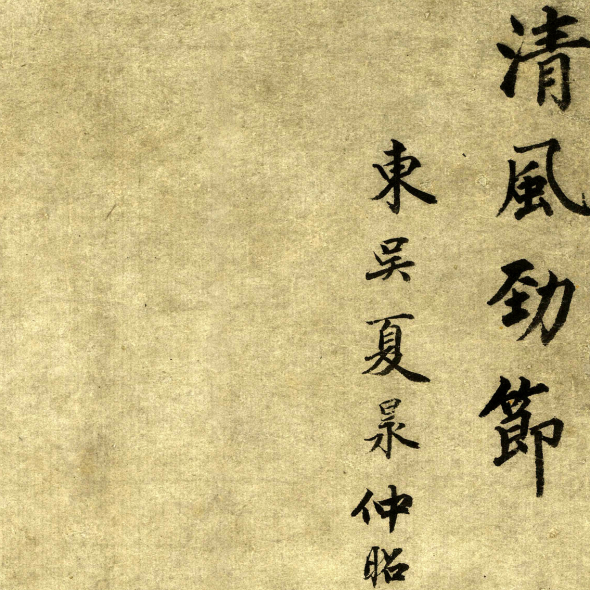 清風勁節
東吳夏㫤仲昭